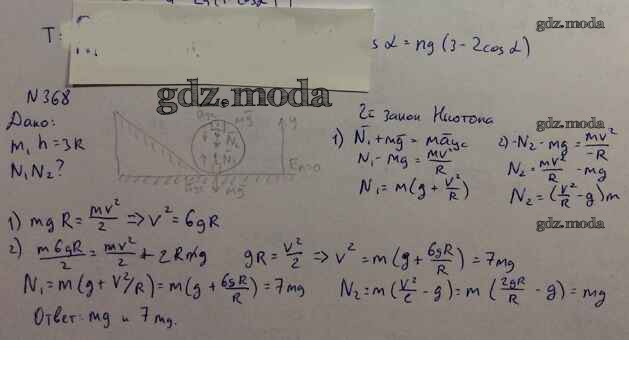 gdz.moda
T =
s α = mg (3 - 2cos α)
N 368
gdz.moda
Дано:
m, h = 3R
N₁ N₂ ?
mg
N₂
N₁
y
E₀=0
mg
2й закон Ньютона
gdz.moda
1) N̄₁ + mḡ = māцс
N₁ - mg = mv²/R
N₁ = m(g + v²/R)
2) -N₂ - mg = mv²/-R
N₂ = mv²/R - mg
N₂ = (v²/R - g)m
gdz.moda
1) mgR = mv²/2 => v² = 6gR
2) m6gR/2 = mv²/2 + 2Rmg gR = v²/2 => v² = m(g + 6gR/R) = 7mg
N₁ = m(g + V²/R) = m(g + 6gR/R) = 7mg N₂ = m(v²/c - g) = m(2gR/R - g) = mg
Ответ: mg и 7mg.